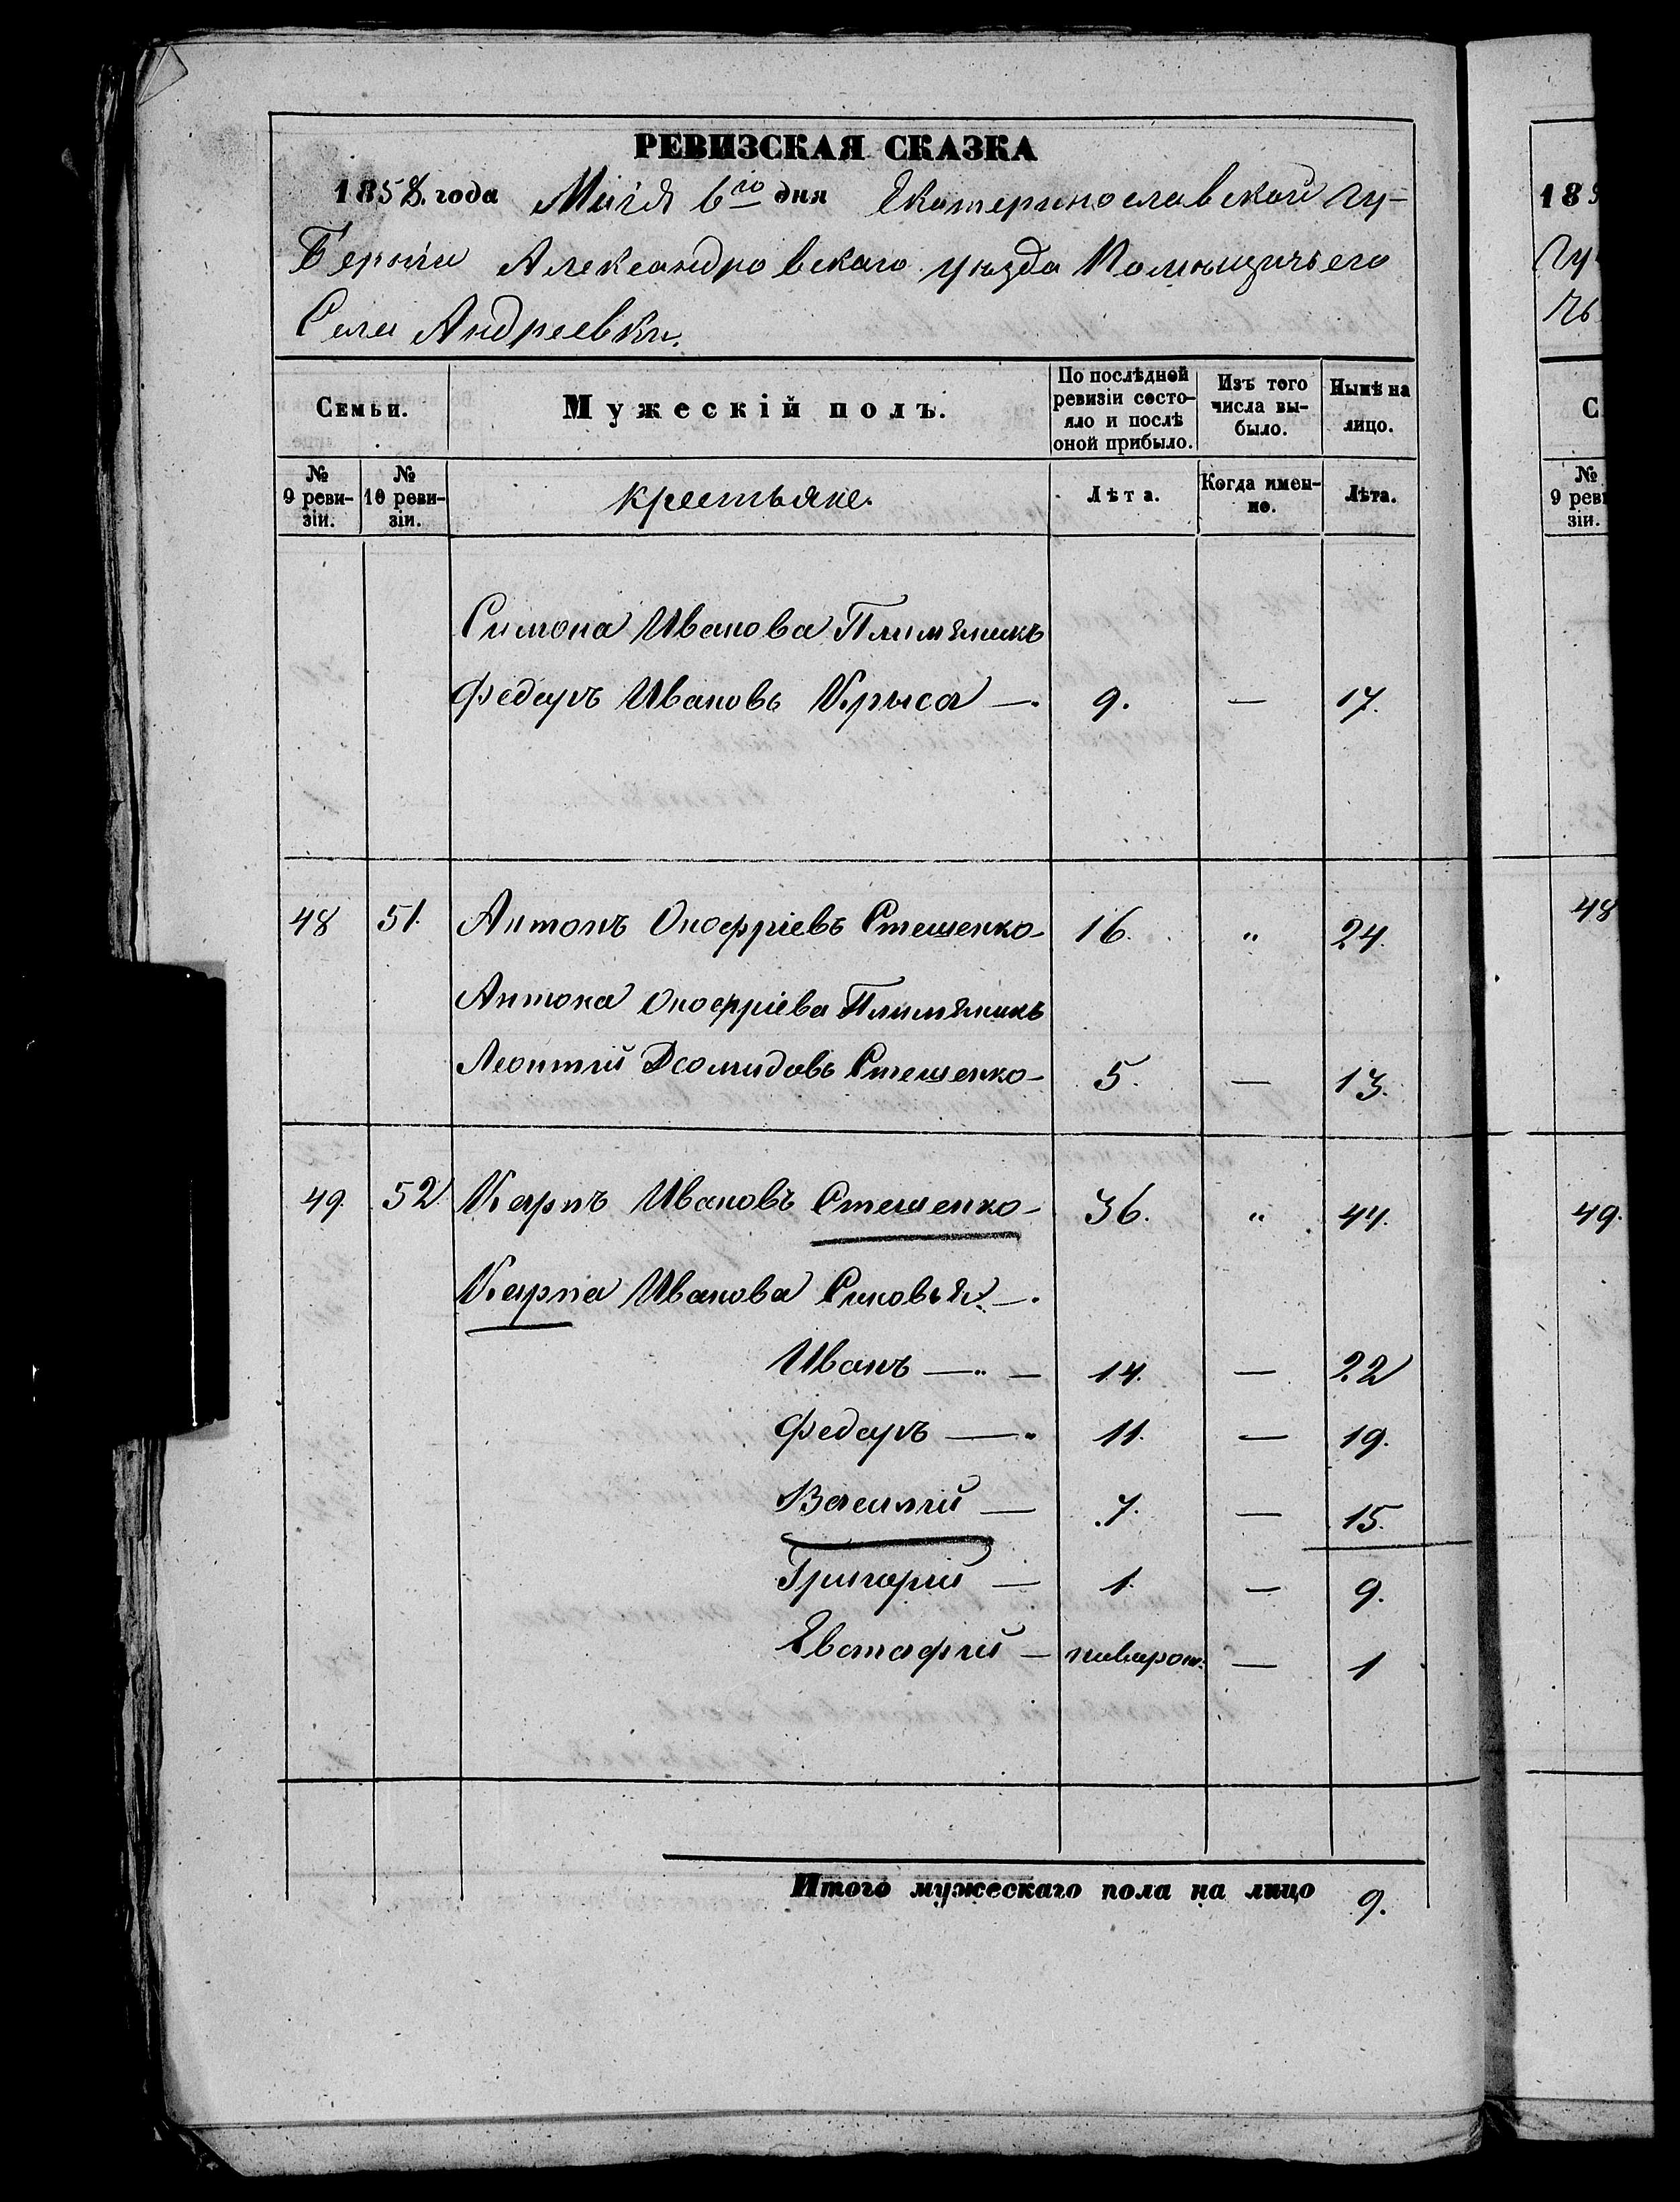 РЕВИЗСКАЯ СКАЗКА
1858. года Маія 6го дня Екатеринославской гу-
берніи Александровскаго уѣзда Помѣщичьего
Села Андреевки.
Семьи.
Мужескій полъ.
По послѣдней ревизіи состо-яло и послѣ оной прибыло.
Изъ того числа вы-было.
Нынѣ на лицо.
№ 9 реви-зіи.
№ 10 реви-зіи.
крестьяне.
Лѣта.
Когда имен-но.
Лѣта.
Симона Иванова Племяникъ
Федоръ Ивановъ Крыса —. 9. — 17.
48 51. Антонъ Онофріевъ Стешенко- 16. " 24.
Антона Онофріева Племяникъ
Леонтій Дсомидовъ Стешенко- 5. — 13.
49. 52 Карпъ Ивановъ Стешенко- 36. " 44.
Карпа Иванова Сыновья. —.
Иванъ — " — 14. — 22
Федоръ — " 11. — 19.
Василій — 7. — 15.
Григорій — 1. — 9.
Евстафій — новорож. — 1
Итого мужескаго пола на лицо 9.
183
гу
чь
С
№
9 реви
зіи.
48
49.